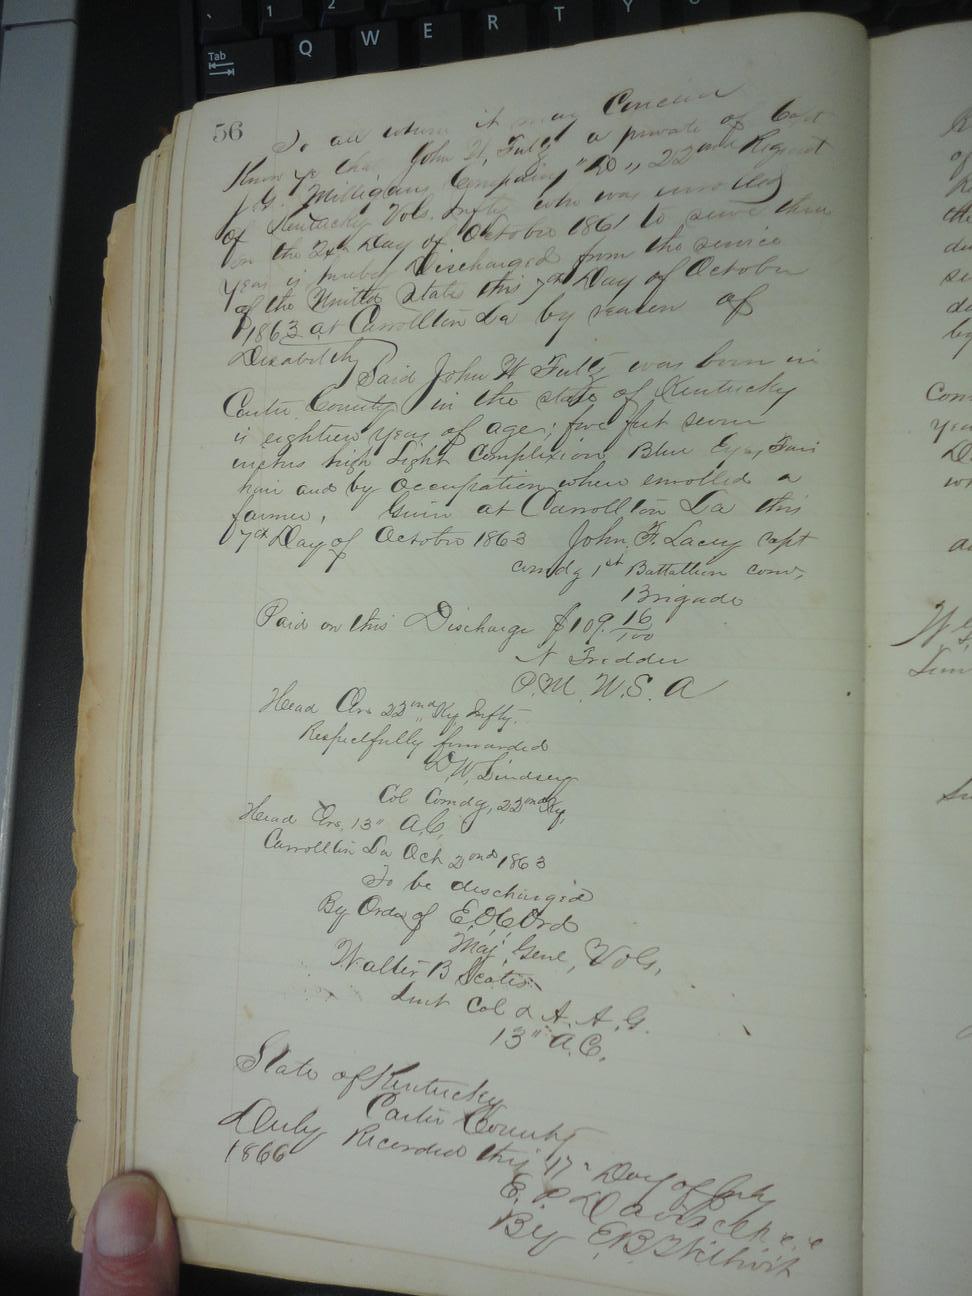 ` 1 2
Tab Q W E R T Y
56
To all whom it may Concern
Know ye that John W, Fultz a private of Capt
J.G. Milligans Company "D" 22nd Regment
of Kentucky Vols. Infty who was enrolled
on the Day of Octobre 1861 to serve three
years is hereby Discharged from the service
of the United State this 7th Day of October
1863 at Carrollton La by reason of
Disability
Said John W Fultz was born in
Carter County in the state of Kentucky
is eighteen years of age; five feet seven
inches high Light Complexion Blue Eyes, Fair
hair and by occupation when enrolled a
farmer, Given at Carrollton La this
7th Day of Octobre 1863 John F. Lacey Capt
comdg 1st Battallion conv,
Brigade
Paid on this Discharge $109 16/100
P.M. U.S.A
Head Qrs 22nd Ky Infty.
Respectfully forwarded
D,W, Lindsey
Col Comdg, 22nd Ky,
Head Qrs, 13" A,C,
Carrollton La Oct 2nd 1863
To be discharged
By Order of E,O,C, Ord
Maj Genl, Vols,
Walter B Scates
Leut Col & A. A. G.
13" A.C.
State of Kentucky
Carter County
Duly Recorded this 17" Day of July
1866
E. P. Davis Clk
By E.B.